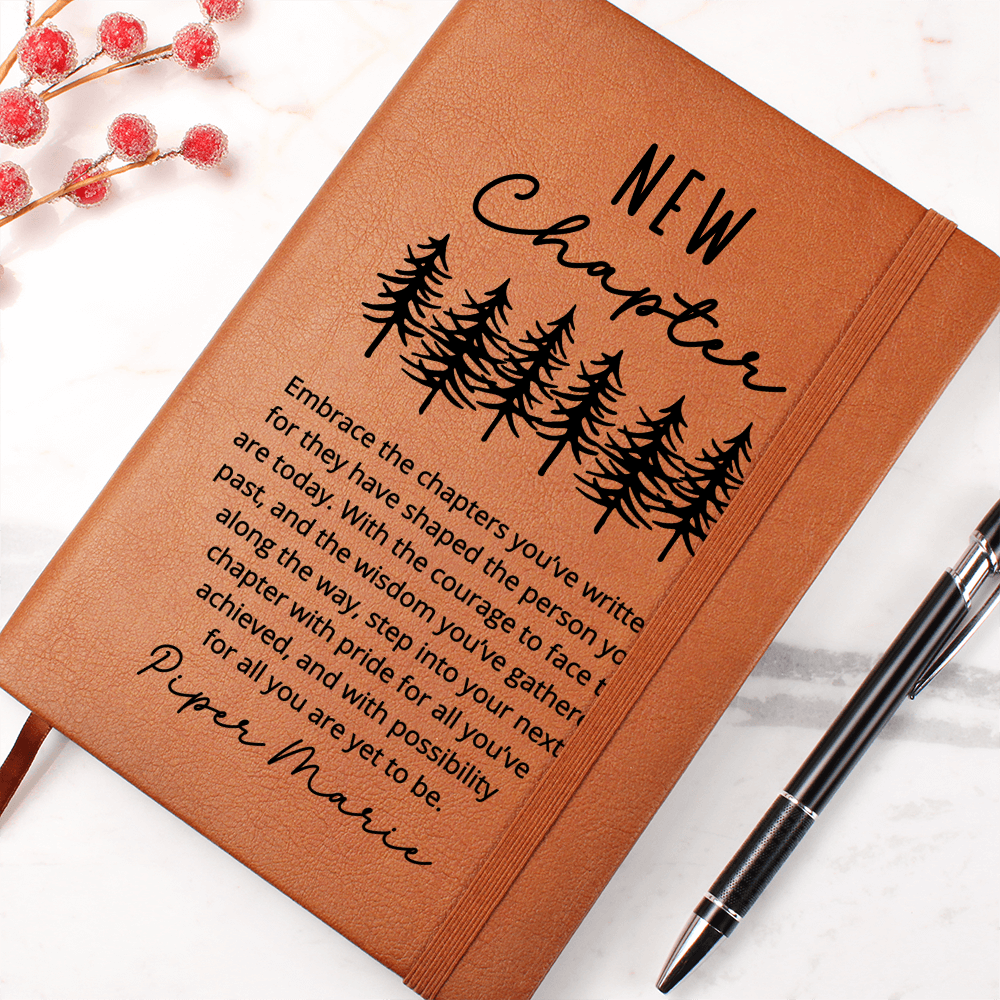 NEW
Chapter
Embrace the chapters you've writte
for they have shaped the person yo
are today. With the courage to face t
past, and the wisdom you've gathere
along the way, step into your next
chapter with pride for all you've
achieved, and with possibility
for all you are yet to be.
Piper Marie